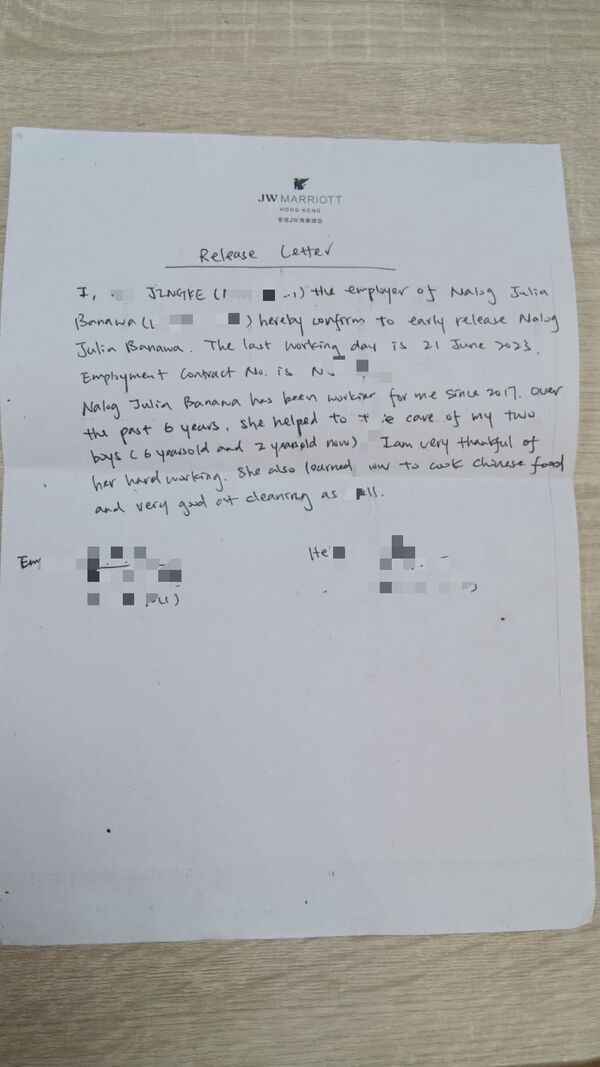 JW MARRIOTT
HONG KONG
Release Letter
I, JINGKE ( the employer of Nalog Julia
Banawa ( ) hereby confirm to early release Nalog
Julia Banawa. The last working day is 21 June 2023.
Employment Contract No. is
Nalog Julia Banawa has been worker for me since 2017. Over
the past 6 years, she helped to care of my two
boys (6 yearsold and 2 yearsold now) I am very thankful of
her hard working. She also learned to cook Chinese food
and very good at cleaning as